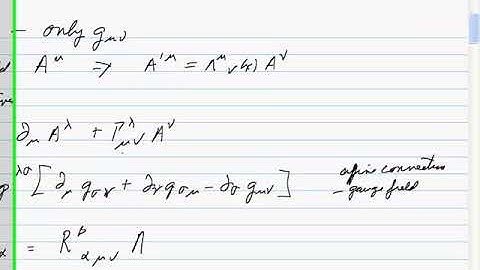 - only g_{μν}
A^μ ⇒ A'^μ = Λ^μ_ν(x) A^ν
∂_μ A^λ + Γ^λ_{μν} A^ν
g^{λσ} [ ∂_μ g_{σν} + ∂_ν g_{σμ} - ∂_σ g_{μν} ]
affine connection
- gauge field
= R^β_{αμν} Λ